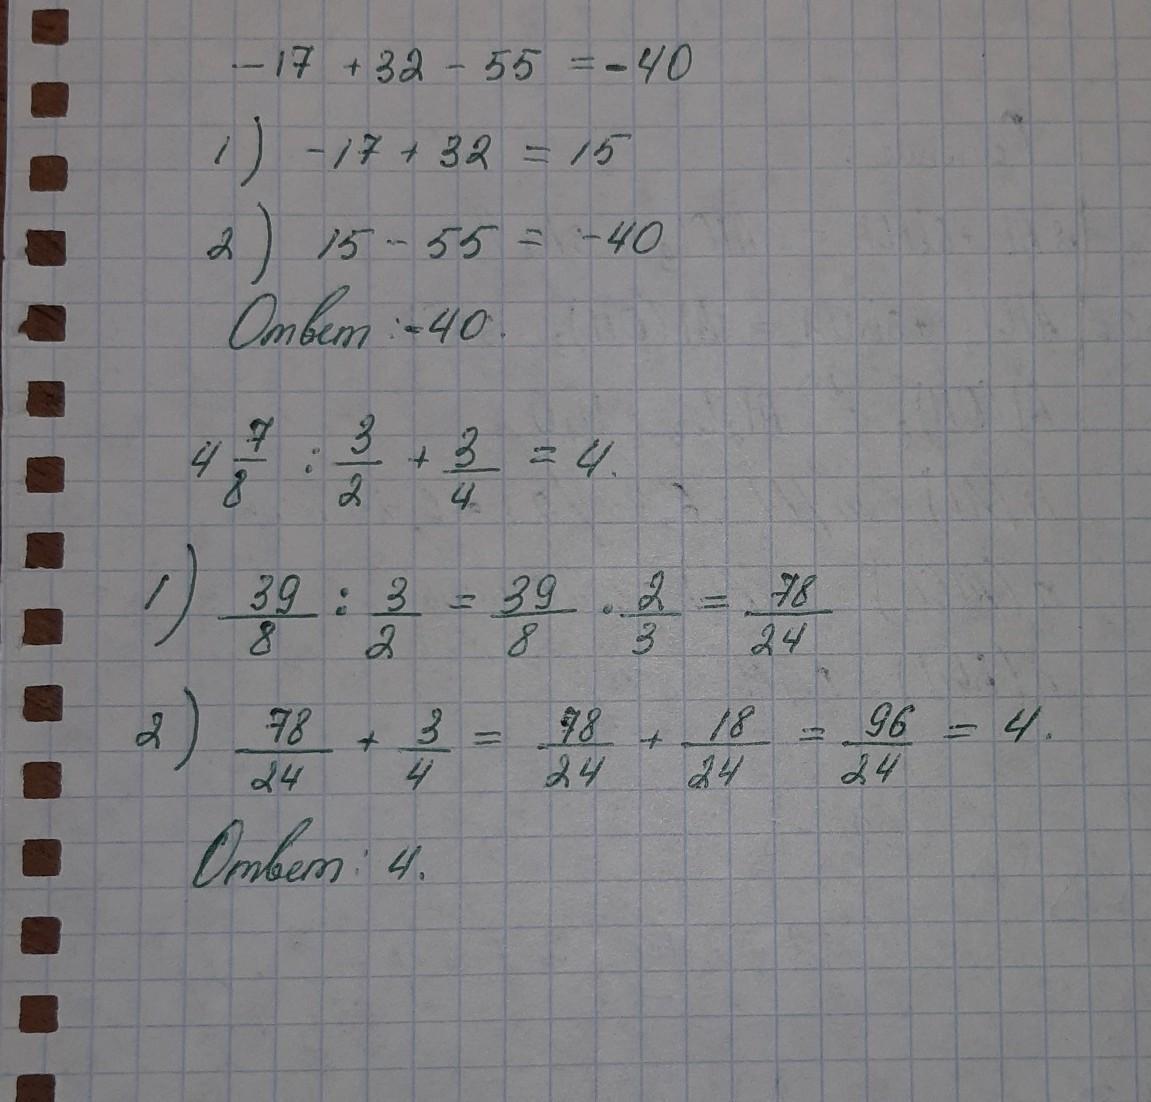 -17 + 32 - 55 = -40
1) -17 + 32 = 15
2) 15 - 55 = -40
Ответ: -40.
4 7/8 : 3/2 + 3/4 = 4.
1) 39/8 : 3/2 = 39/8 · 2/3 = 78/24
2) 78/24 + 3/4 = 78/24 + 18/24 = 96/24 = 4.
Ответ: 4.